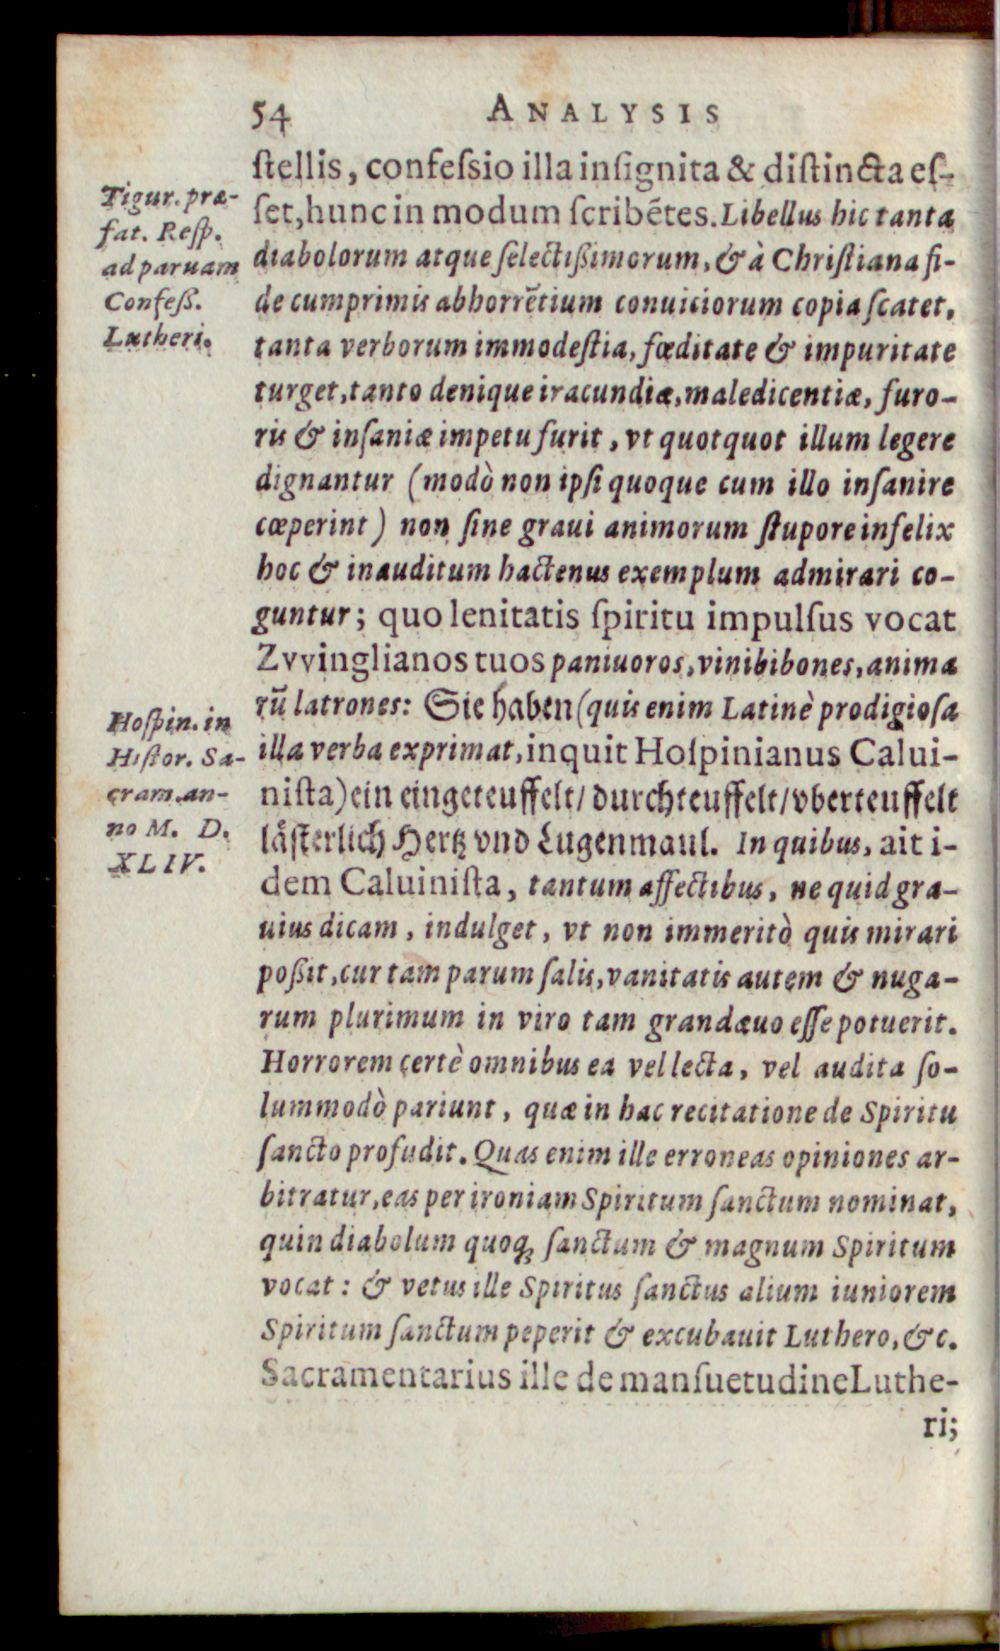 54 ANALYSIS
ſtellis, confeſsio illa inſignita & diſtincta eſ-
ſet, hunc in modum ſcribẽtes. Libellus hic tanta
diabolorum atque ſelectißimorum, & à Chriſtiana fi-
de cumprimis abhorrẽtium conuiciorum copia ſcatet,
tanta verborum immodeſtia, fœditate & impuritate
turget, tanto denique iracundiæ, maledicentiæ, furo-
ris & inſaniæ impetu furit, vt quotquot illum legere
dignantur (modò non ipſi quoque cum illo inſanire
cœperint) non ſine graui animorum ſtupore infelix
hoc & inauditum hactenus exemplum admirari co-
guntur; quo lenitatis ſpiritu impulſus vocat
Zvvinglianos tuos paniuoros, vinibibones, anima
rũ latrones: Sie haben (quis enim Latinè prodigioſa
illa verba exprimat, inquit Hoſpinianus Calui-
niſta) ein eingeteuffelt/ durchteuffelt/ vberteuffelt
låſterlich Hertz vnd Lugenmaul. In quibus, ait i-
dem Caluiniſta, tantum affectibus, ne quid gra-
uius dicam, indulget, vt non immeritò quis mirari
poßit, cur tam parum ſalis, vanitatis autem & nuga-
rum plurimum in viro tam grandæuo eſſe potuerit.
Horrorem certè omnibus ea vel lecta, vel audita ſo-
lummodò pariunt, quæ in hac recitatione de Spiritu
ſancto profudit. Quas enim ille erroneas opiniones ar-
bitratur, eas per ironiam Spiritum ſanctum nominat,
quin diabolum quoq; ſanctum & magnum Spiritum
vocat: & vetus ille Spiritus ſanctus alium iuniorem
Spiritum ſanctum peperit & excubauit Luthero, &c.
Sacramentarius ille de manſuetudine Luthe-
ri;
Tigur. præ-
fat. Reſp.
ad paruam
Confeß.
Lutheri.
Hoſpin. in
Hiſtor. Sa-
cram. an-
no M. D.
XLIV.